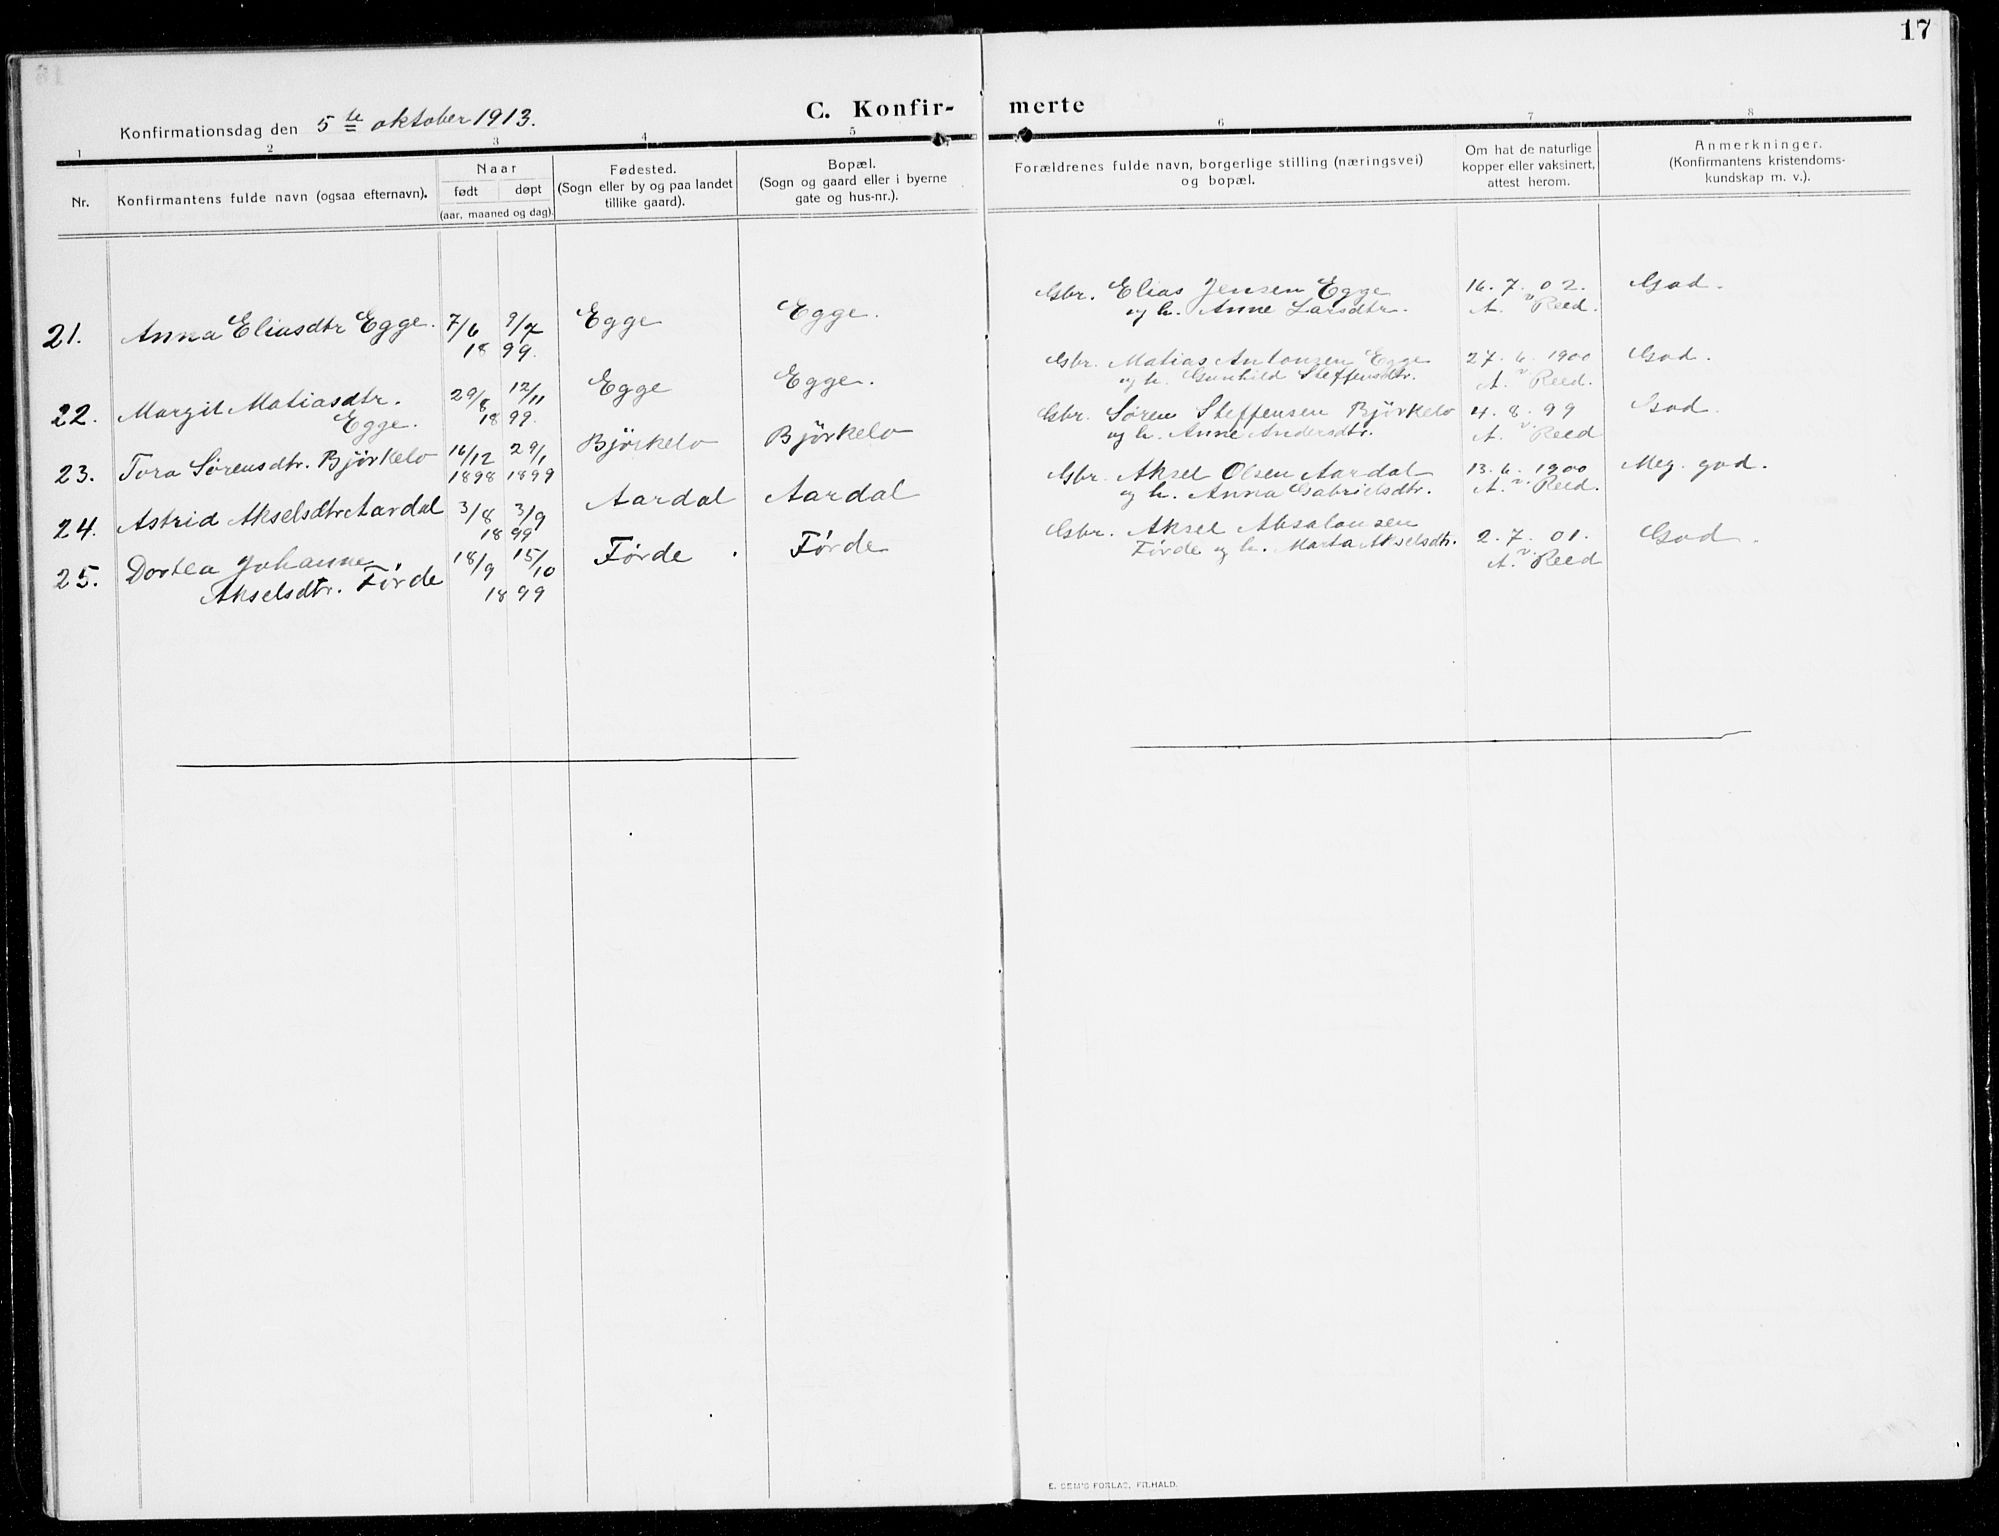 17
Konfirmationsdag den 5te oktober 1913.
C. Konfir- merte
1 2 3 4 5 6 7 8
Nr.
Konfirmantens fulde navn (ogsaa efternavn).
Naar
født døpt
(aar, maaned og dag).
Fødested.
(Sogn eller by og paa landet
tillike gaard).
Bopæl.
(Sogn og gaard eller i byerne
gate og hus-nr.).
Forældrenes fulde navn, borgerlige stilling (næringsvei)
og bopæl.
Om hat de naturlige
kopper eller vaksinert,
attest herom.
Anmerkninger.
(Konfirmantens kristendoms-
kundskap m. v.).
21. Anna Eliasdtr Egge. 7/6 9/7 Egge Egge. Gbr. Elias Jensen Egge 16. 7. 02. God.
1899. og h. Anne Larsdtr. A. v. Reed.
22. Margit Matiasdtr. 29/8 12/11 Egge Egge. Gbr. Matias Antonsen Egge 27. 6. 1900 God.
Egge. 1899. og h. Gunhild Steffensdtr. A. v. Reed.
23. Tora Sørensdtr. Bjørkelo 16/12 29/1 Bjørkelo Bjørkelo Gbr. Søren Steffensen Bjørkelo 4. 8. 99 God.
1898 1899 og h. Anne Andersdtr. A. v. Reed
24. Astrid Akselsdtr Aardal 3/8 3/9 Aardal Aardal Gbr. Aksel Olsen Aardal 13. 6. 1900 Meg. god.
1899 og h. Anna Gabrielsdtr. A. v. Reed.
25. Dortea Johanne 18/9 15/10 Førde. Førde Gbr. Aksel Absalonsen 2. 7. 01. God.
Akselsdtr. Førde 1899 Førde og h. Marta Akselsdtr. A. v. Reed
E. SEM'S FORLAG, FR.HALD.